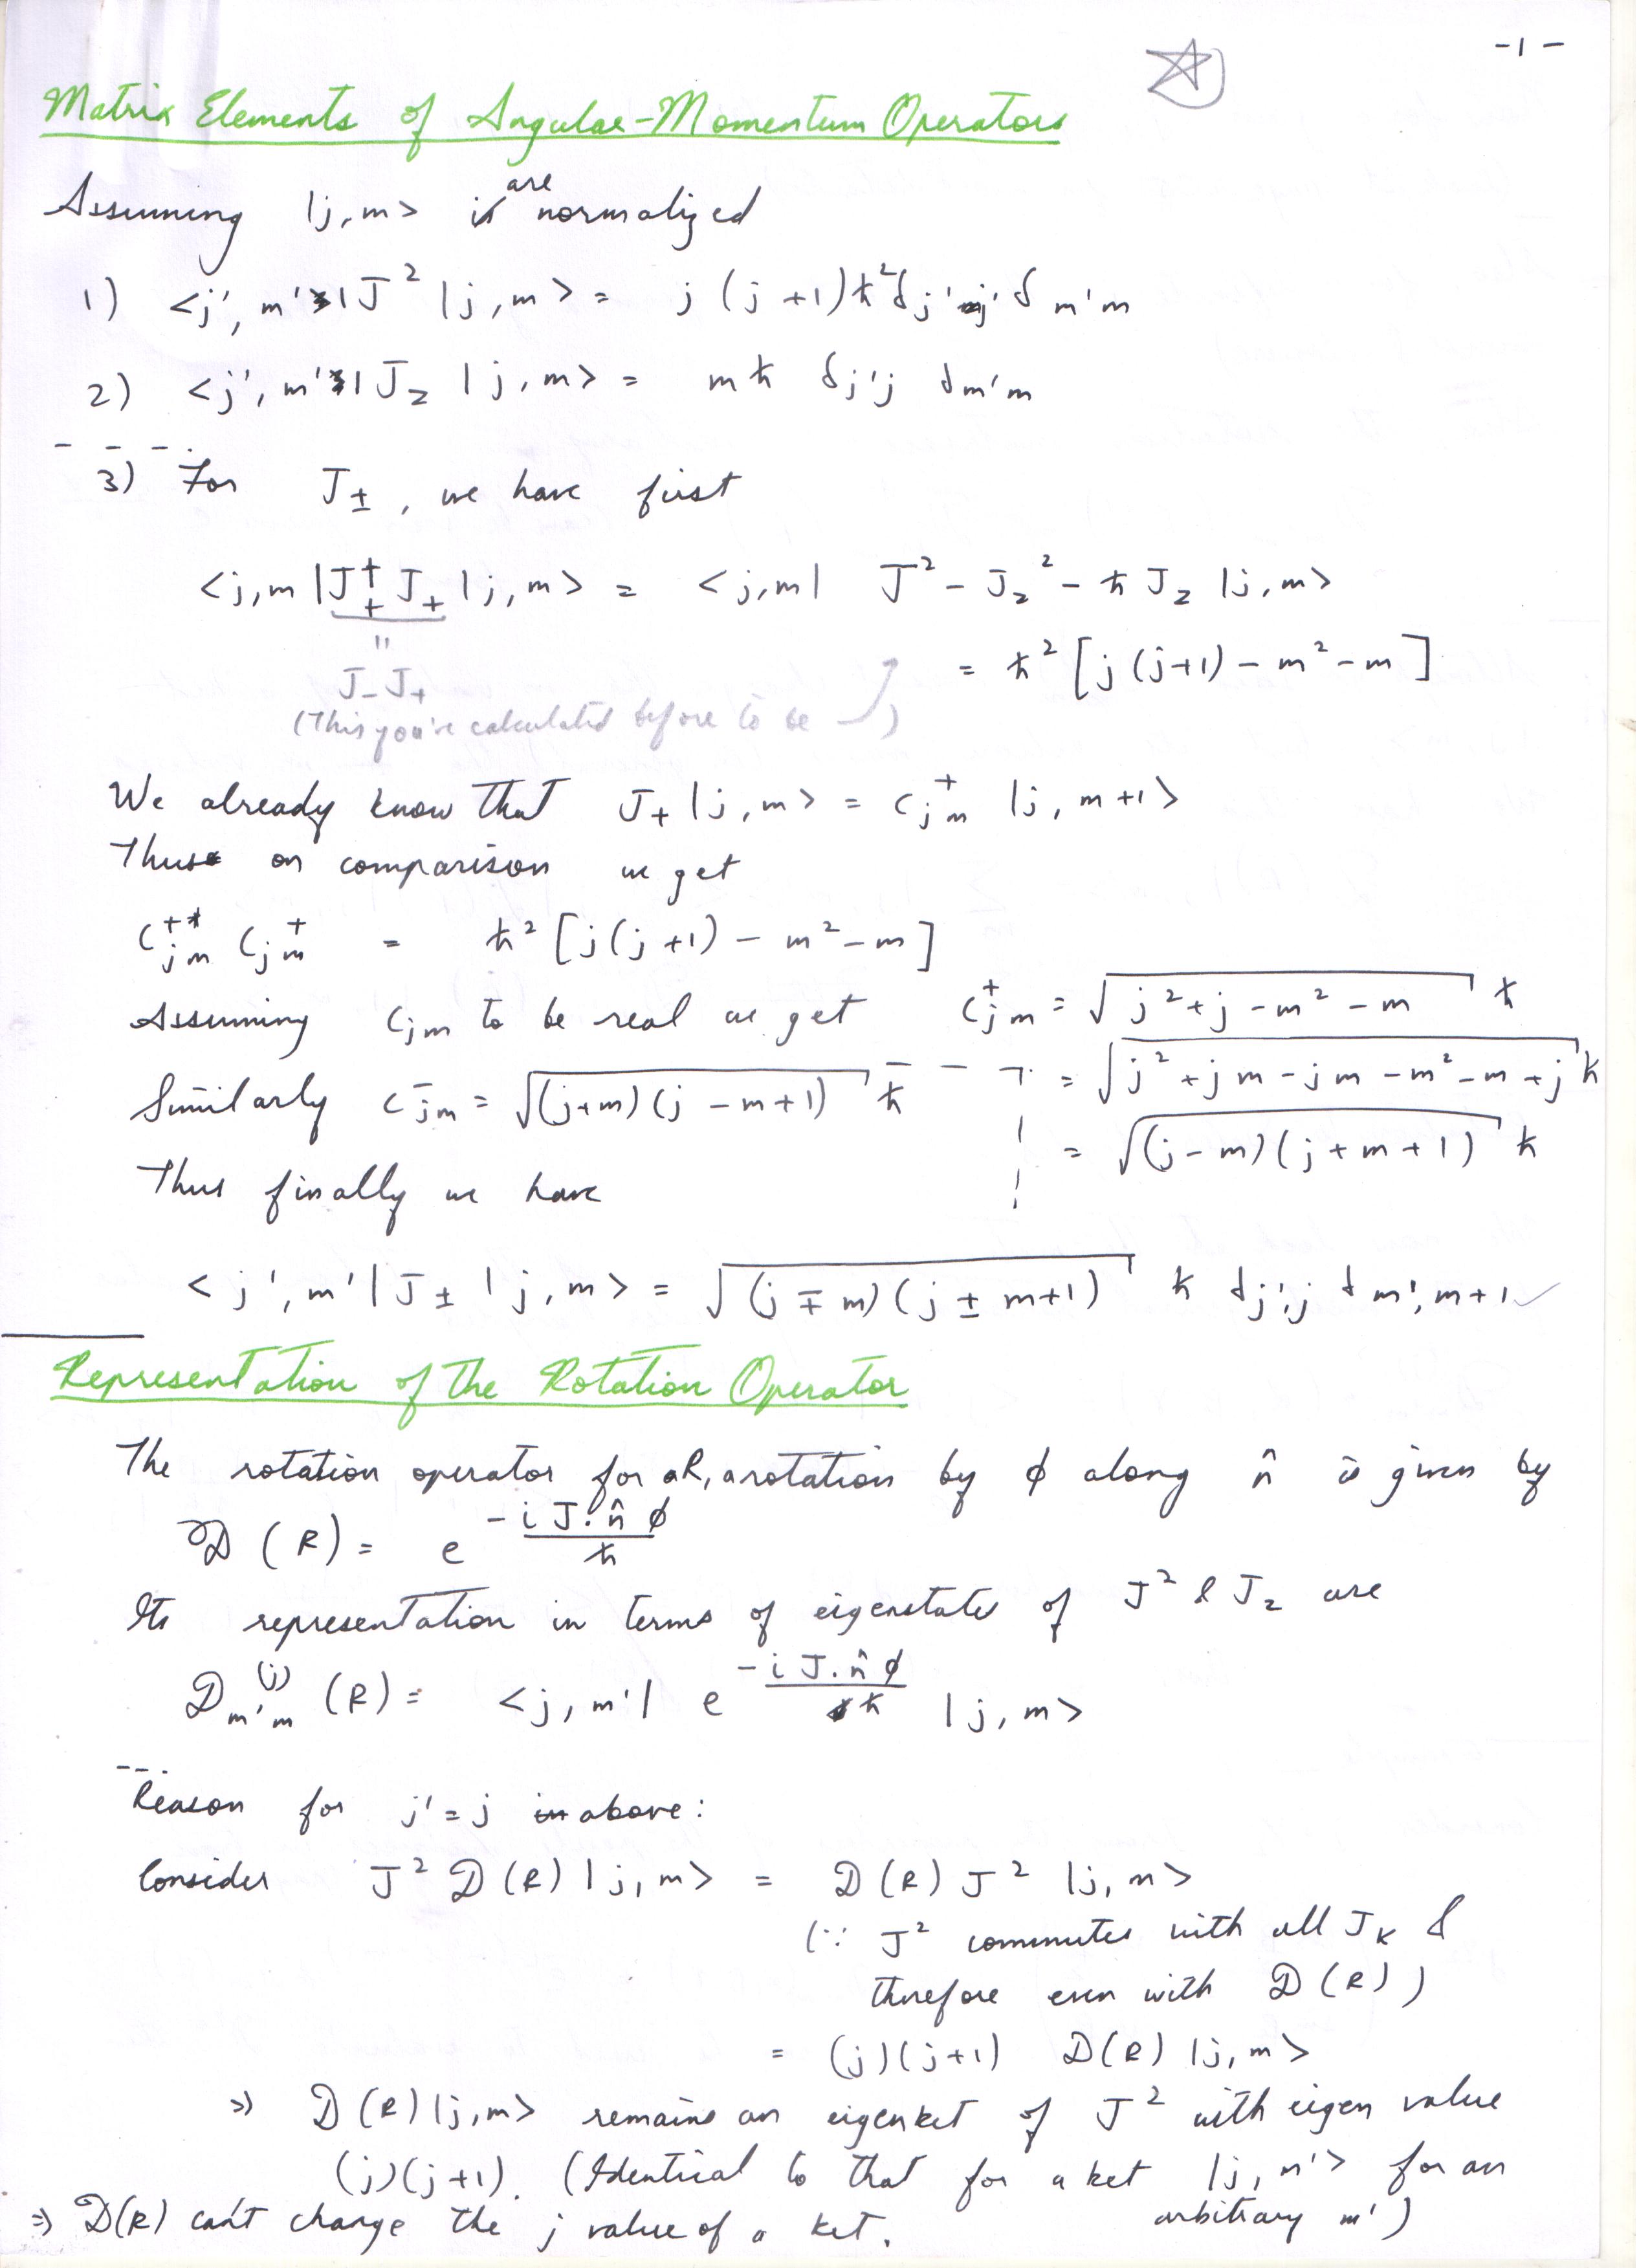 -1-
Matrix Elements of Angular-Momentum Operators
Assuming |j,m> are normalized
1) <j', m'|J² |j,m> = j(j+1)ħ² δj'j δm'm
2) <j', m'|Jz |j,m> = mħ δj'j δm'm
3) For J±, we have first
<j,m|J₊† J₊|j,m> = <j,m| J² - Jz² - ħJz |j,m>
"
= ħ² [j(j+1) - m² - m]
J₋J₊
(This you've calculated before to be )
We already know that J₊|j,m> = C⁺jm |j, m+1>
Thus on comparison we get
C⁺*jm C⁺jm = ħ² [j(j+1) - m² - m]
Assuming Cjm to be real we get C⁺jm = √(j²+j-m²-m) ħ
= √(j²+jm-jm-m²-m+j) ħ
Similarly C⁻jm = √((j+m)(j-m+1)) ħ
= √((j-m)(j+m+1)) ħ
Thus finally we have
<j', m'|J± |j,m> = √((j∓m)(j±m+1)) ħ δj',j δm',m+1 ✓
Representation of the Rotation Operator
The rotation operator for a R, a rotation by ϕ along n̂ is given by
𝒟(R) = e^(-iJ·n̂ϕ/ħ)
Its representation in terms of eigenstates of J² & Jz are
𝒟^(j)m'm (R) = <j,m'| e^(-iJ·n̂ϕ/ħ) |j,m>
Reason for j'=j above:
Consider J² 𝒟(R)|j,m> = 𝒟(R) J² |j,m>
(∵ J² commutes with all Jk &
therefore even with 𝒟(R))
= (j)(j+1) 𝒟(R) |j,m>
⇒ 𝒟(R)|j,m> remains an eigenket of J² with eigen value
(j)(j+1). (Identical to that for a ket |j,m'> for an
arbitrary m')
⇒ 𝒟(R) can't change the j value of a ket.